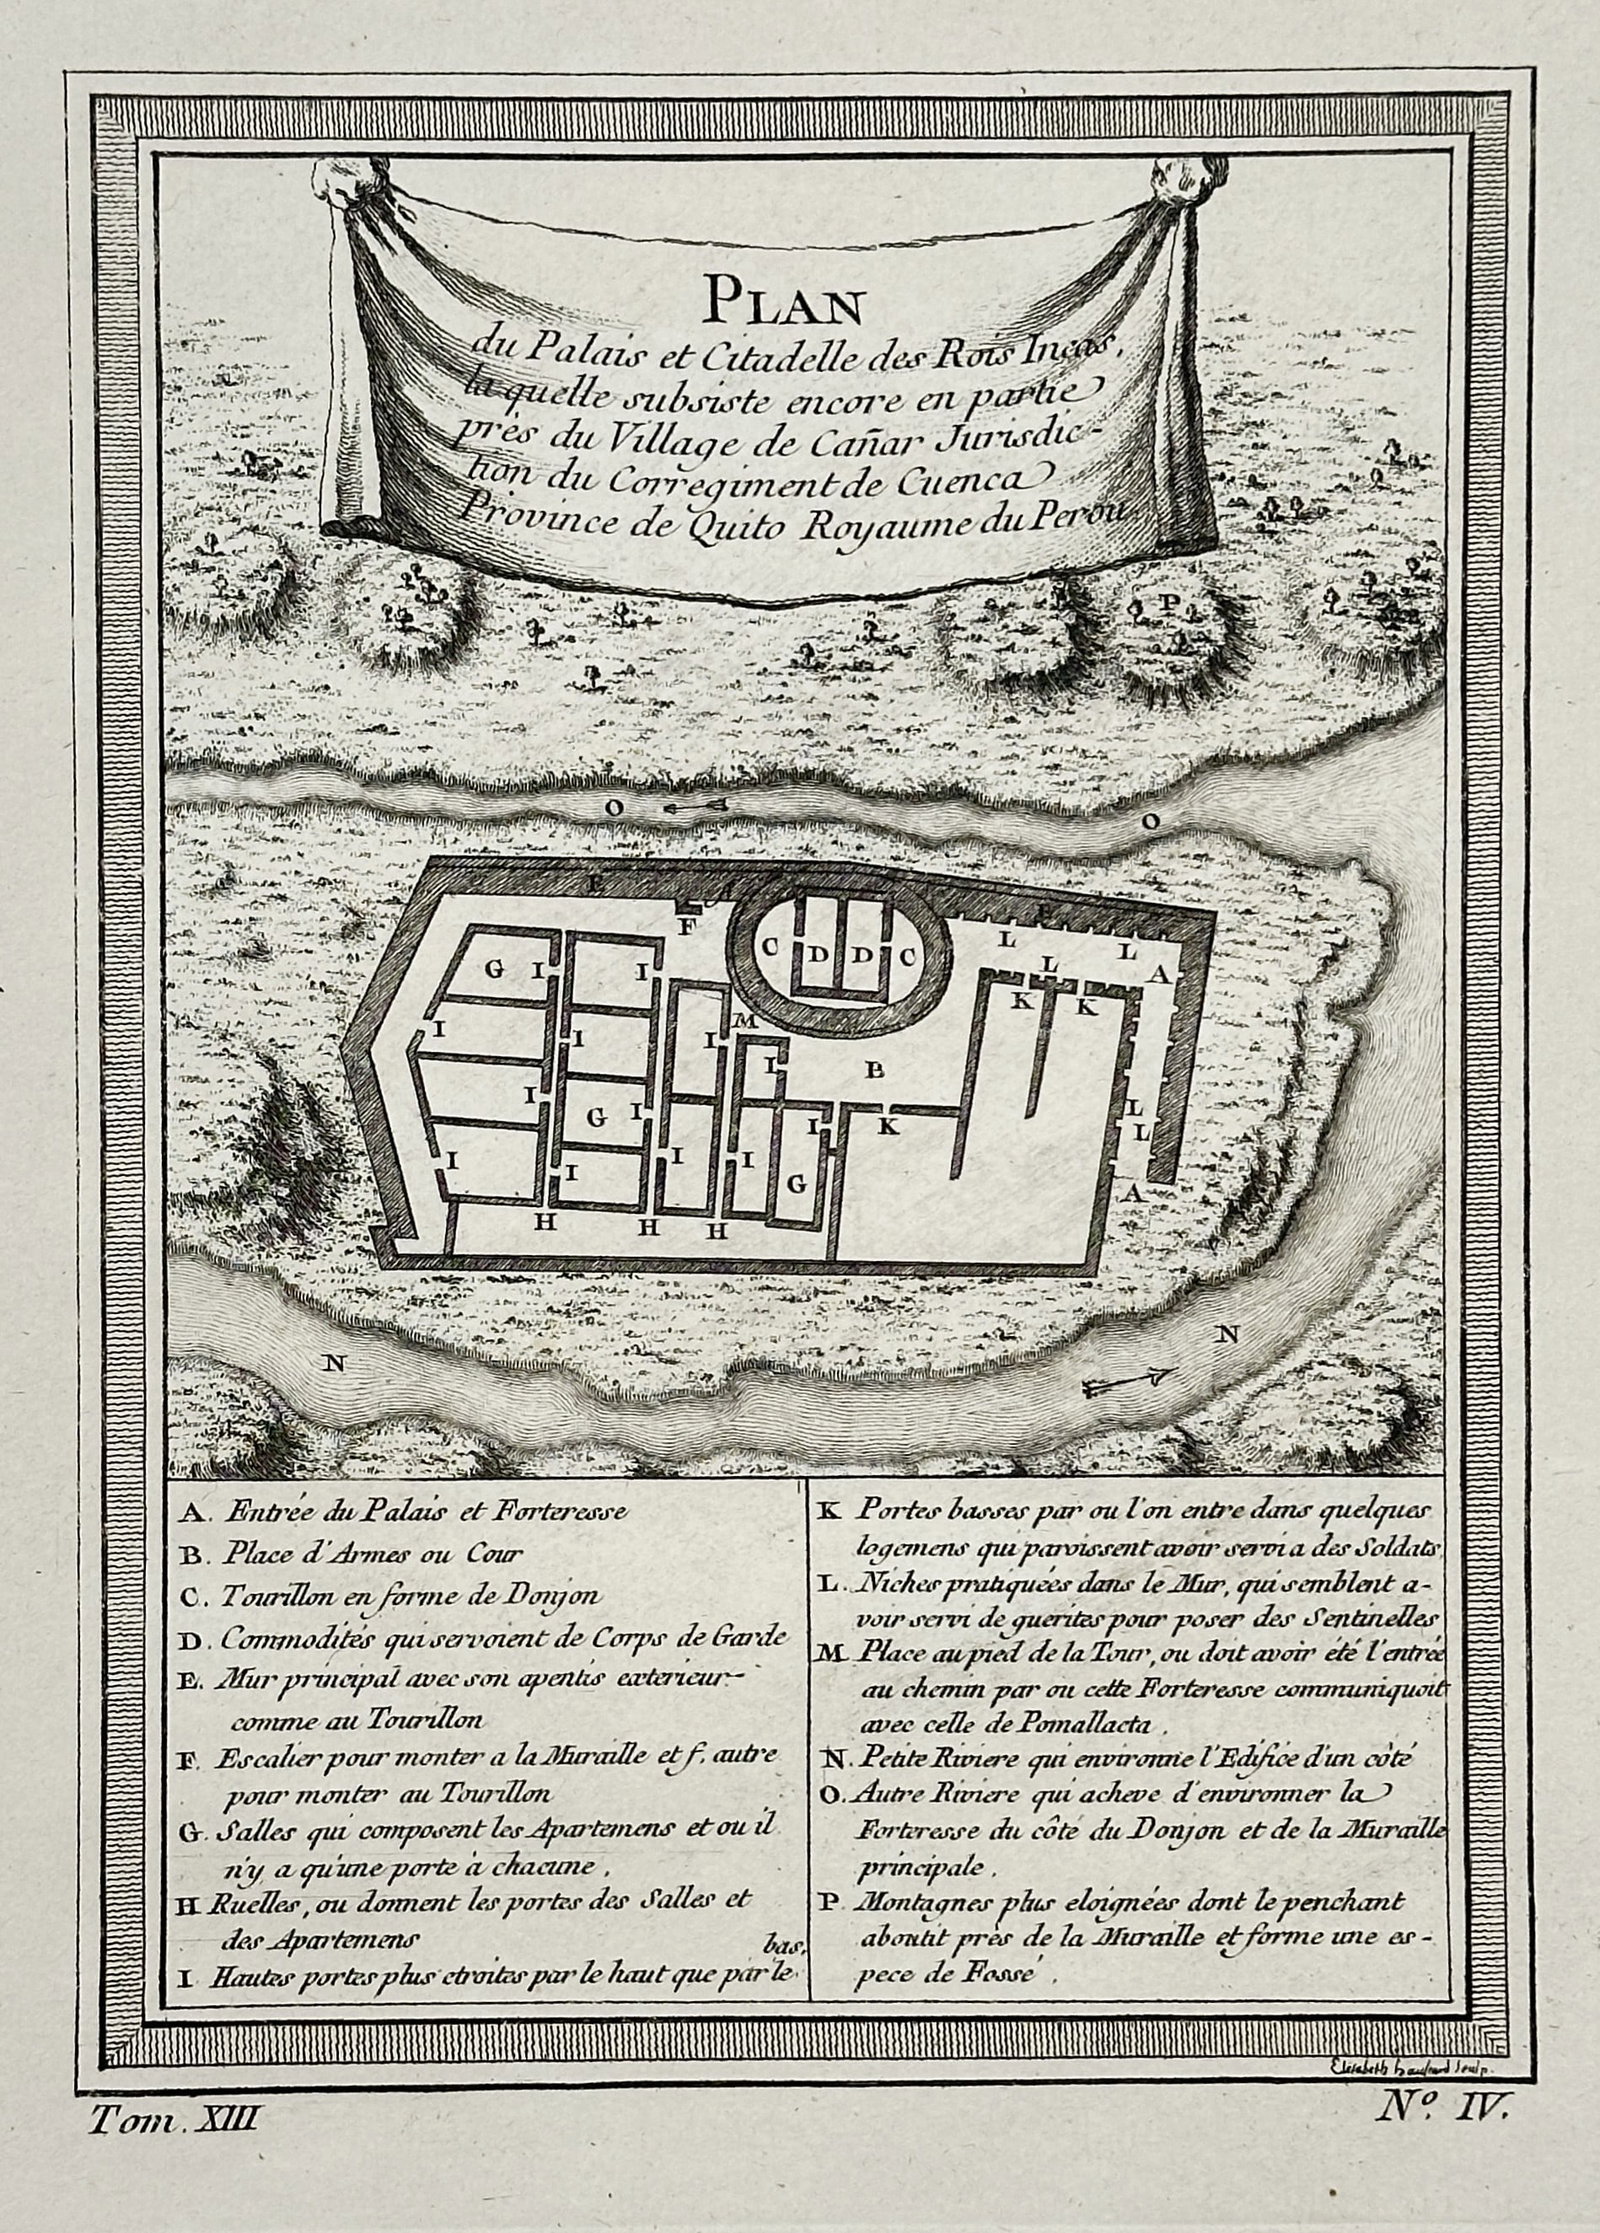 PLAN
du Palais et Citadelle des Rois Incas,
la quelle subsiste encore en partie
près du Village de Cañar Jurisdic-
tion du Corregiment de Cuenca
Province de Quito Royaume du Perou.
P
O
O
E
f
E
F
C
D
D
C
L
L
L
A
G
I
I
K
K
I
I
I
M
I
B
I
G
I
I
K
L
L
I
I
I
I
G
A
H
H
H
N
N
A. Entrée du Palais et Forteresse
B. Place d'Armes ou Cour
C. Tourillon en forme de Donjon
D. Commodités qui servoient de Corps de Garde
E. Mur principal avec son apentis exterieur
comme au Tourillon
F. Escalier pour monter a la Muraille et f. autre
pour monter au Tourillon
G. Salles qui composent les Apartemens et ou il
n'y a qu'une porte à chacune.
H Ruelles, ou donnent les portes des Salles et
des Apartemens
I Hautes portes plus etroites par le haut que par le
bas.
K Portes basses par ou l'on entre dans quelques
logemens qui paroissent avoir servi a des Soldats
L. Niches pratiquées dans le Mur, qui semblent a-
voir servi de guerites pour poser des Sentinelles
M Place au pied de la Tour, ou doit avoir été l'entrée
au chemin par ou cette Forteresse communiquoit
avec celle de Pomallacta.
N. Petite Riviere qui environne l'Edifice d'un côté
O. Autre Riviere qui acheve d'environner la
Forteresse du côté du Donjon et de la Muraille
principale.
P. Montagnes plus eloignées dont le penchant
aboutit près de la Muraille et forme une es-
pece de Fossé.
Elisabeth Sculp.
Tom. XIII
No. IV.